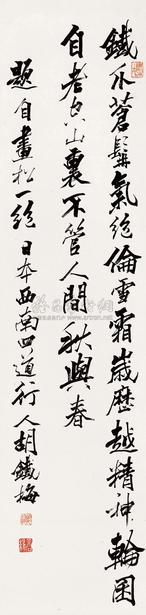 鐵爪蒼髯氣絶倫雪霜歲歷越精神輪囷
自老空山裏不管人間秋與春
題自畫松一絶 日本西南四道行人胡鐵梅